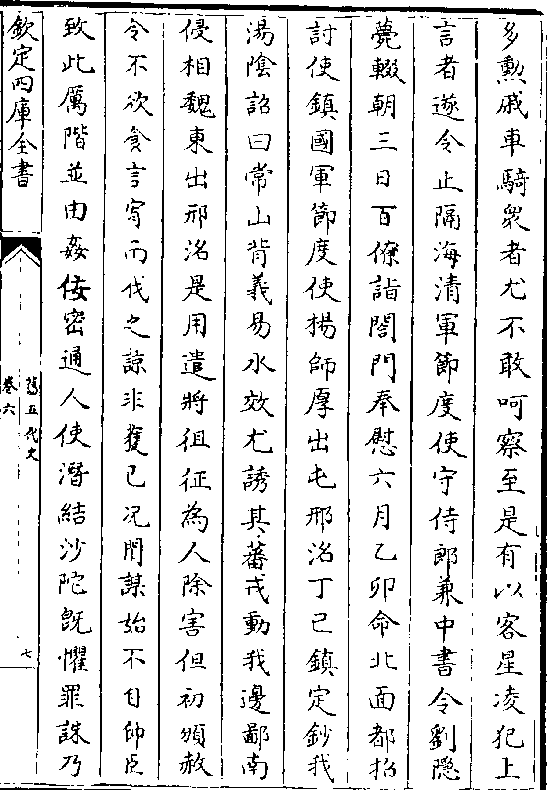 多勲戚車騎衆者尤不敢呵察至是有以客星凌犯上
言者遂令止隔海清軍節度使守侍郎兼中書令劉隠
薨輟朝三日百僚詣閤門奉慰六月乙卯命北面都招
討使鎮國軍節度使楊師厚出屯邢洺丁巳鎮定鈔我
湯陰詔曰常山背義易水效尤誘其蕃戎動我邊鄙南
侵相魏東出邢洺是用遣將徂征為人除害但初頒赦
令不欲食言宥而伐之諒非獲已况聞謀始不自帥臣
致此厲階並由姦佞密通人使潛結沙陀旣懼罪誅乃
欽定四庫全書
舊五代史
卷六
七